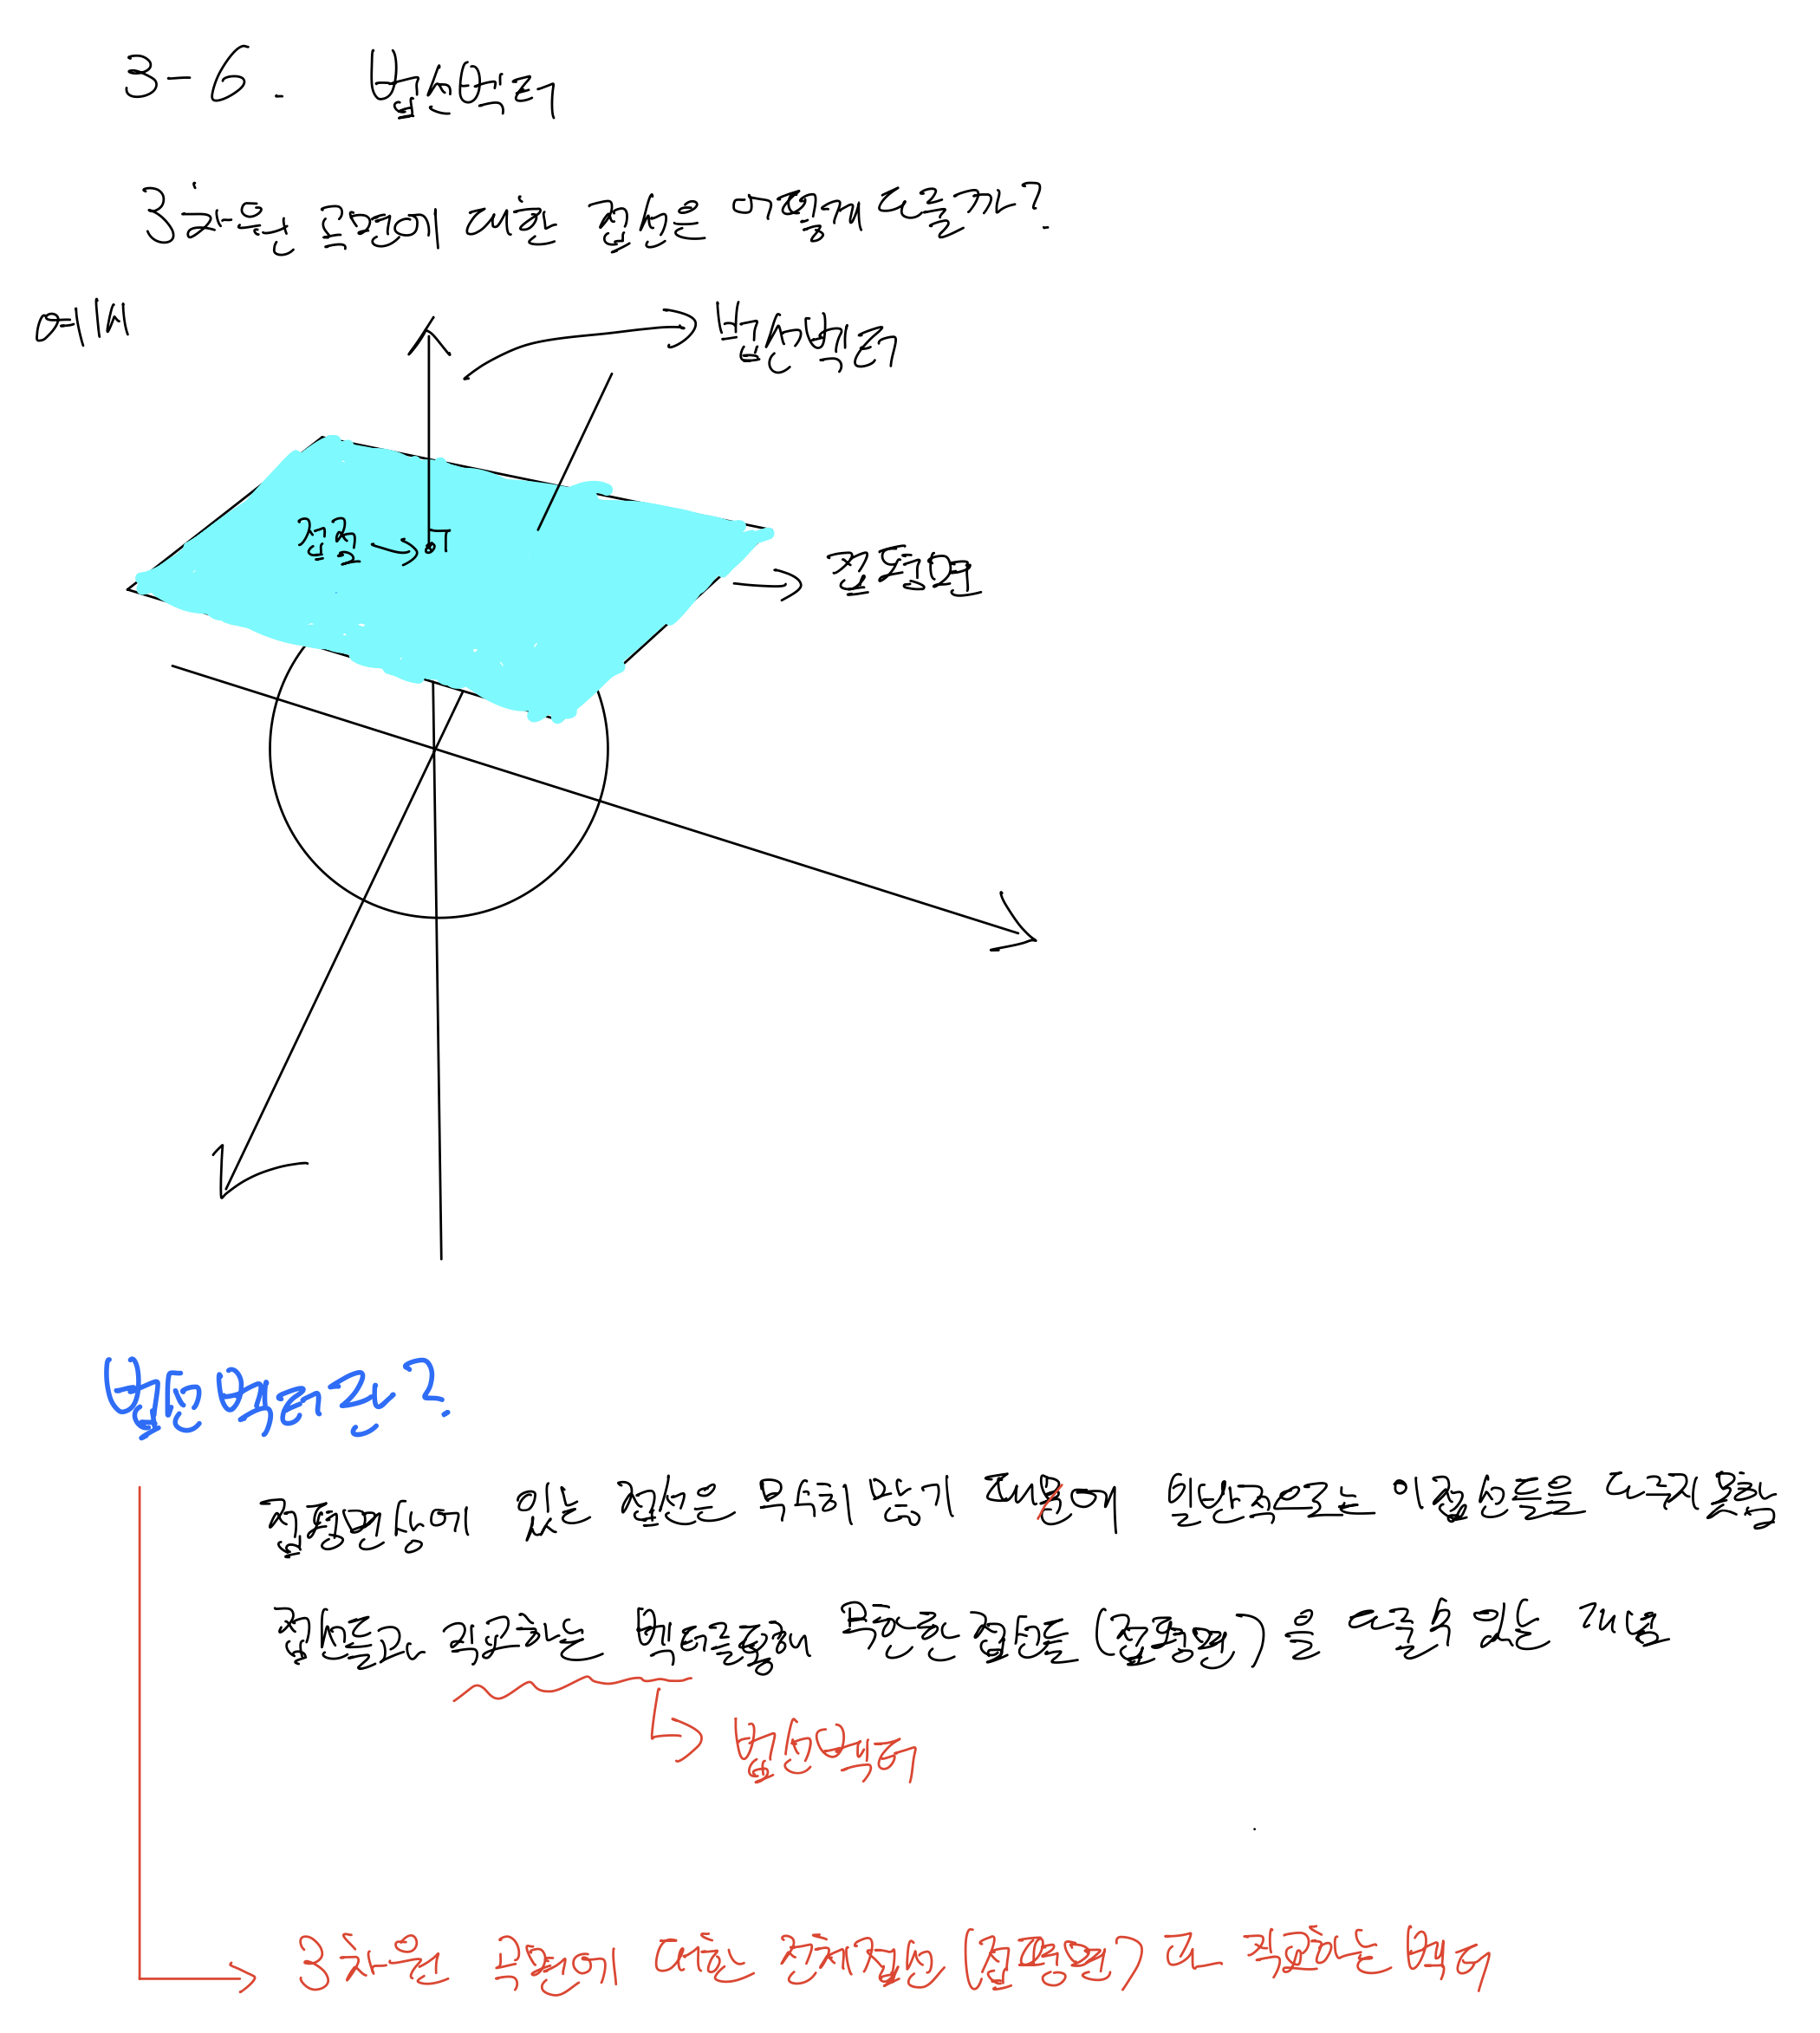 3-6. 법선벡터
3차원 곡면에 대한 접선은 어떻게 다룰까?
예시
법선벡터
접점
접평면
법선벡터란?
접평면상에 있는 접선은 무수히 많기 때문에 일반적으로는 이 접선들을 다루지 못함
접선들과 직교하는 벡터를 통해 무한한 접선들 (접평면)을 다룰수 있는 개념
법선벡터
3차원 곡면에 대한 전체접선 (접평면) 과 직교하는 벡터